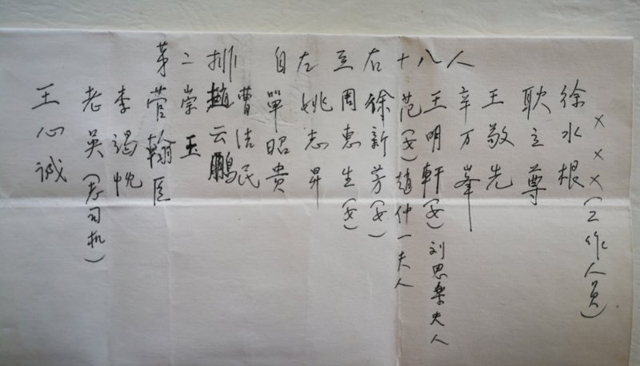 第二排 自左至右十八人
王心诚
李竭忱
老吴(老司机)
菅翰臣
崇玉
趙云鹏
曹洁民
單昭贵
姚志昇
周惠生(女)
徐新芳(女)
范(女)趙仲一夫人
王明軒(女)刘思桑夫人
辛万峯
王敬先
耿立尊
徐水根
×××(工作人员)